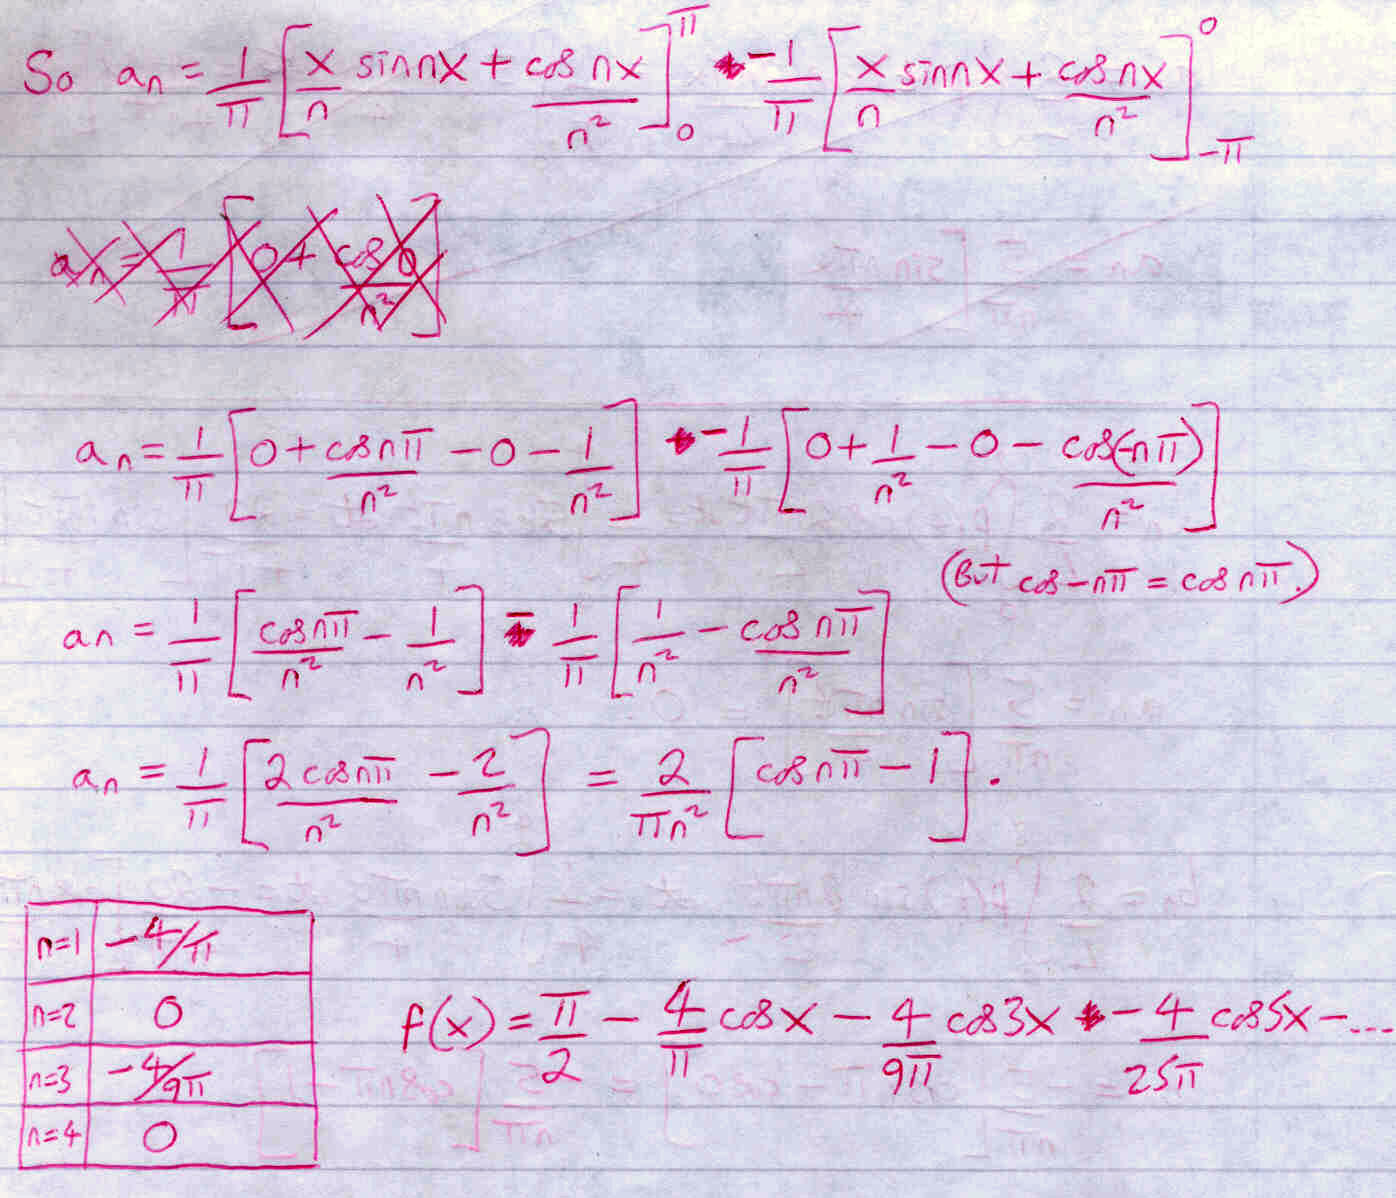 So aₙ = 1/π [x/n sin nx + cos nx/n²]₀^π - 1/π [x/n sin nx + cos nx/n²]₋π^0
aₙ = 1/π [0 + cos 0/n²]
aₙ = 1/π [0 + cos nπ/n² - 0 - 1/n²] - 1/π [0 + 1/n² - 0 - cos(-nπ)/n²]
(But cos -nπ = cos nπ.)
aₙ = 1/π [cos nπ/n² - 1/n²] - 1/π [1/n² - cos nπ/n²]
aₙ = 1/π [2 cos nπ/n² - 2/n²] = 2/πn² [cos nπ - 1].
n=1 -4/π
n=2 0
n=3 -4/9π
n=4 0
f(x) = π/2 - 4/π cos x - 4/9π cos 3x - 4/25π cos 5x - ...